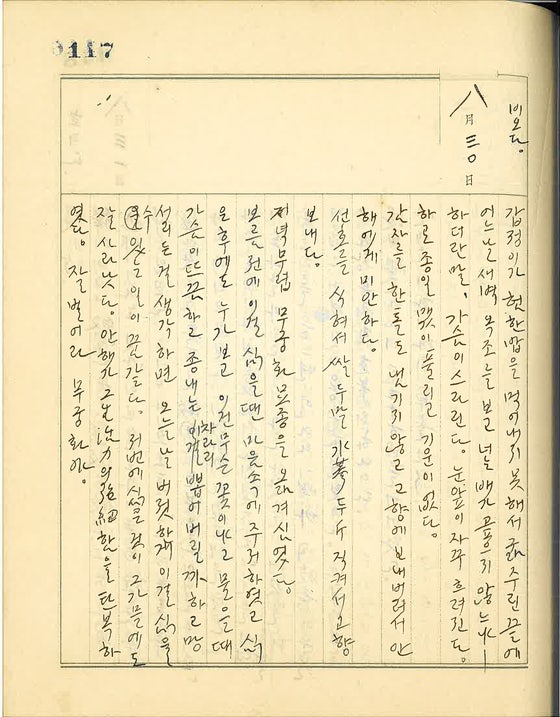 117
비오다.
八月三〇日
갑정이가 헌한맙을 먹어내지 못해서 굶주린 끝에
어느날 새벽 목조를 보고 너는 배가 고프지 않느냐―
하더란 말, 가슴이 스라린다. 눈앞이 자꾸 흐려진다.
하로 종일 맺이 풀리고 기운이 없다.
감자를 한톨도 냉기지 않고 고향에 보내버려서 안
해에게 미안하다.
선호를 식혀서 쌀 두말 小麥 두 지켜서 고향
보내다.
저녁무렵 무궁화 묘종을 옮겨 심었다.
보름전에 이걸 심을땐 마음속에 주저하였고 심
은 후에도 누가 보고 이건 무슨 꽃이냐고 물을때
가슴이 뜨끔하고 종내는 차라리 이걸 뽑어버릴까 하고 망
서리든걸 생각하면 오늘날 버젓하게 이걸 심을
수 있는 일이 꿈같다. 저번에 심은 것이 그 가믐에도
잘 사라낫다. 안해가 그 生活力의 强 함을 탄복하
였다. 잘 벌어라 무궁화야.